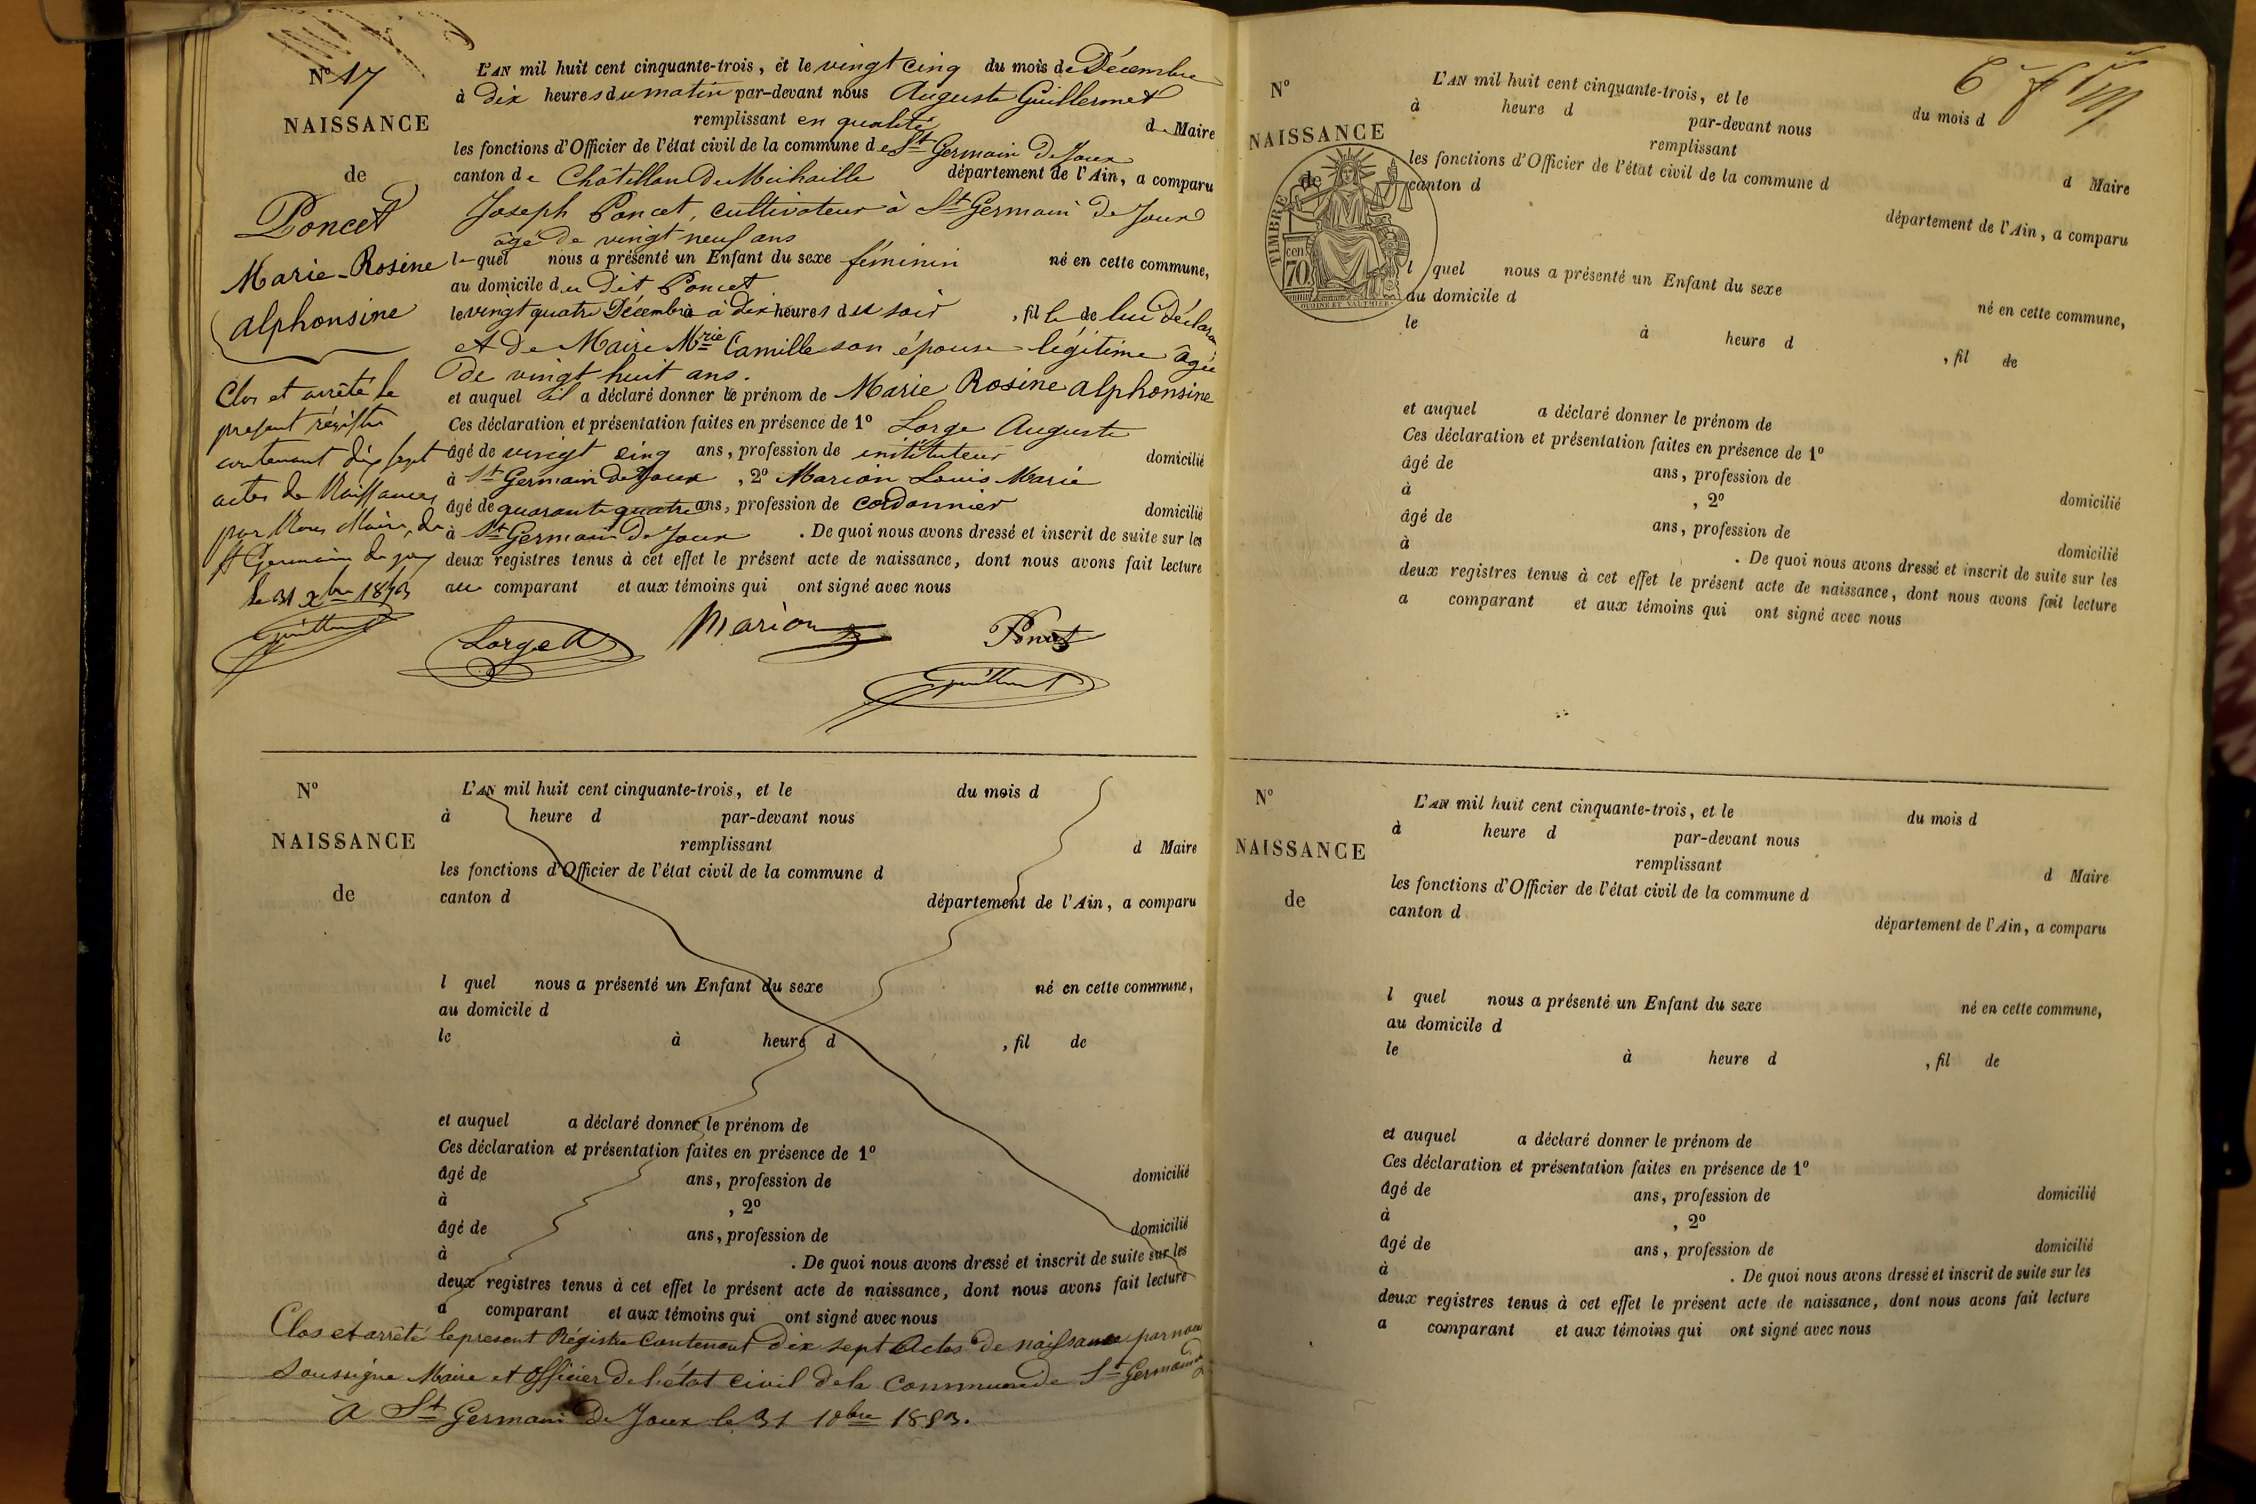 N° 17
NAISSANCE
de
Poncet
Marie-Rosine
alphonsine
Clos et arrêté le
present régistre
contenant dix sept
actes de Naissances
par Nous Maire de
St Germain de joux
le 31 Xbre 1853
Guillermet
L'AN mil huit cent cinquante-trois, et le vingt cinq du mois de Décembre
à dix heures du matin par-devant nous Auguste Guillermet
remplissant en qualité de Maire
les fonctions d'Officier de l'état civil de la commune de St Germain De Joux
canton de Châtillon De Michaille département de l'Ain, a comparu
Joseph Poncet, cultivateur à St Germain De Joux
âgé De vingt neuf ans
lequel nous a présenté un Enfant du sexe féminin né en cette commune,
au domicile du Dit Poncet
le vingt quatre Décembre à dix heures du soir, fille de lui Déclarant
et De Maire Mrie Camille son épouse légitime âgée
De vingt huit ans.
et auquel il a déclaré donner le prénom de Marie Rosine alphonsine
Ces déclaration et présentation faites en présence de 1° Lorge Auguste
âgé de vingt cinq ans, profession de instituteur domicilié
à St Germain De Joux, 2° Marion Louis Marie
âgé de quarante quatre ans, profession de cordonnier domicilié
à St Germain De Joux. De quoi nous avons dressé et inscrit de suite sur les
deux registres tenus à cet effet le présent acte de naissance, dont nous avons fait lecture
au comparant et aux témoins qui ont signé avec nous
Lorge A
Marion
Poncet
Guillermet
N°
NAISSANCE
de
L'AN mil huit cent cinquante-trois, et le du mois d
à heure d par-devant nous
remplissant d Maire
les fonctions d'Officier de l'état civil de la commune d
canton d département de l'Ain, a comparu
l quel nous a présenté un Enfant du sexe né en cette commune,
au domicile d
le à heure d , fil de
et auquel a déclaré donner le prénom de
Ces déclaration et présentation faites en présence de 1°
âgé de ans, profession de domicilié
à , 2°
âgé de ans, profession de domicilié
à . De quoi nous avons dressé et inscrit de suite sur les
deux registres tenus à cet effet le présent acte de naissance, dont nous avons fait lecture
a comparant et aux témoins qui ont signé avec nous
Clos et arrêté le present Régistre Contenant dix sept Actes de naissance par nous
soussigne Maire et Officier De l'état civil de la Commune de St Germain
A St Germain De Joux le 31 10bre 1853.
N°
NAISSANCE
de
TIMBRE
cen
70
L'AN mil huit cent cinquante-trois, et le du mois d
à heure d par-devant nous
remplissant d Maire
les fonctions d'Officier de l'état civil de la commune d
canton d département de l'Ain, a comparu
l quel nous a présenté un Enfant du sexe né en cette commune,
au domicile d
le à heure d , fil de
et auquel a déclaré donner le prénom de
Ces déclaration et présentation faites en présence de 1°
âgé de ans, profession de domicilié
à , 2°
âgé de ans, profession de domicilié
à . De quoi nous avons dressé et inscrit de suite sur les
deux registres tenus à cet effet le présent acte de naissance, dont nous avons fait lecture
a comparant et aux témoins qui ont signé avec nous
N°
NAISSANCE
de
L'AN mil huit cent cinquante-trois, et le du mois d
à heure d par-devant nous
remplissant d Maire
les fonctions d'Officier de l'état civil de la commune d
canton d département de l'Ain, a comparu
l quel nous a présenté un Enfant du sexe né en cette commune,
au domicile d
le à heure d , fil de
et auquel a déclaré donner le prénom de
Ces déclaration et présentation faites en présence de 1°
âgé de ans, profession de domicilié
à , 2°
âgé de ans, profession de domicilié
à . De quoi nous avons dressé et inscrit de suite sur les
deux registres tenus à cet effet le présent acte de naissance, dont nous avons fait lecture
a comparant et aux témoins qui ont signé avec nous